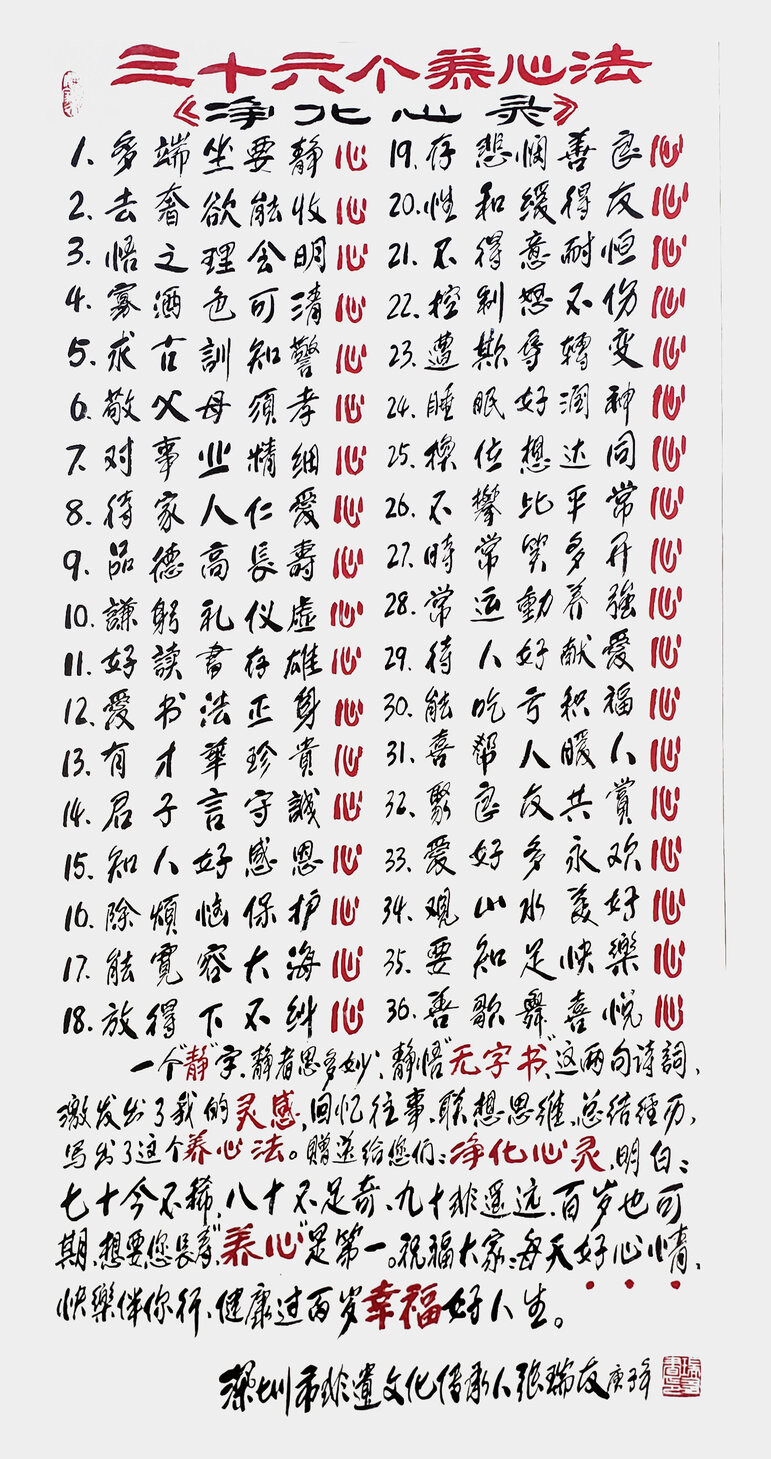 三十六个养心法
《净化心灵》
1.多端坐要静心
2.去奢欲能收心
3.悟之理会明心
4.寡酒色可清心
5.求古訓知警心
6.敬父母須孝心
7.对事业精细心
8.待家人仁愛心
9.品德高長壽心
10.謙躬礼仪虚心
11.好讀書存雄心
12.愛书法正身心
13.有才華珍貴心
14.君子言守誠心
15.知人好感恩心
16.除煩恼保护心
17.能寬容大海心
18.放得下不纠心
19.存悲悯善良心
20.性和缓得友心
21.不得意耐恒心
22.控制怒不伤心
23.遭欺辱轉变心
24.睡眠好润神心
25.换位想达同心
26.不攀比平常心
27.時常笑多开心
28.常运動养強心
29.待人好献爱心
30.能吃亏积福心
31.喜帮人暖人心
32.聚良友共赏心
33.爱好多永欢心
34.观山水美好心
35.要知足快樂心
36.善歌舞喜悦心
一个“静”字、静者思多妙；静悟“无字书”、这两句诗詞、
激发出了我的灵感、回忆往事、联想思维、总结经历，
写出了这个养心法。赠送给您们：净化心灵、明白：
七十今不稀、八十不足奇、九十非遥远、百岁也可
期、想要您長寿、“养心”是第一。祝福大家：每天好心情、
快樂伴你行、健康过百岁幸福好人生。
深圳市非遗文化传承人張瑞友庚子年